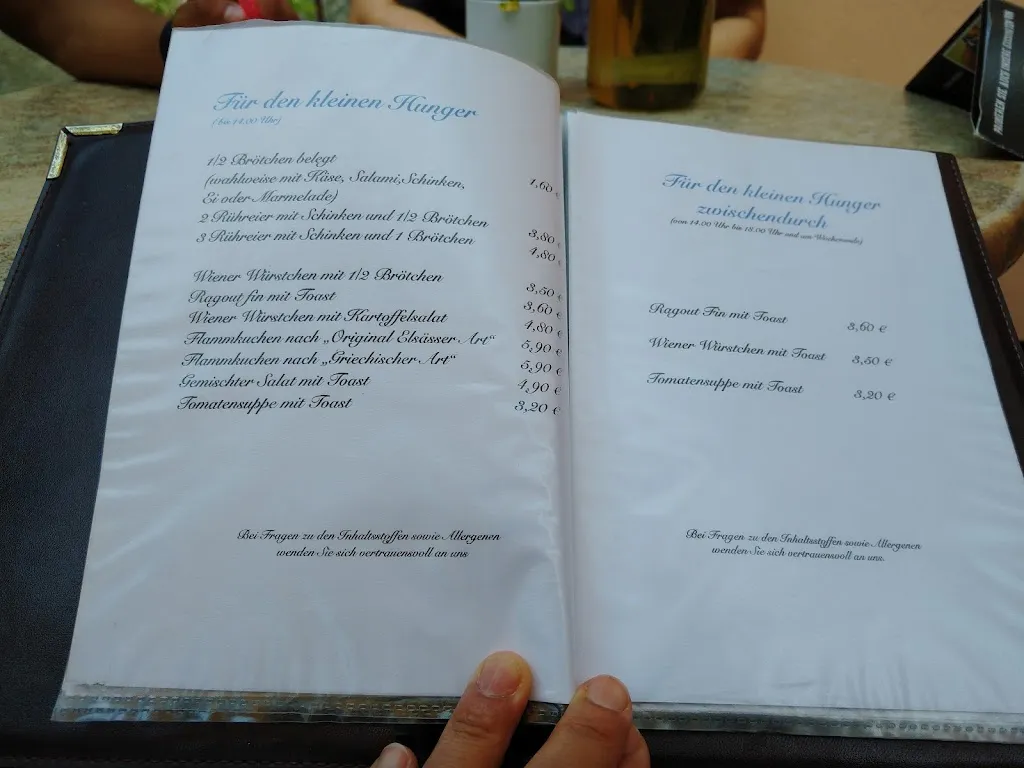 Für den kleinen Hunger
(bis 14.00 Uhr)
1/2 Brötchen belegt
(wahlweise mit Käse, Salami,Schinken,
Ei oder Marmelade) 1,60 €
2 Rühreier mit Schinken und 1/2 Brötchen 3,80 €
3 Rühreier mit Schinken und 1 Brötchen 4,80 €
Wiener Würstchen mit 1/2 Brötchen 3,50 €
Ragout fin mit Toast 3,60 €
Wiener Würstchen mit Kartoffelsalat 4,80 €
Flammkuchen nach „Original Elsässer Art“ 5,90 €
Flammkuchen nach „Griechischer Art“ 5,90 €
Gemischter Salat mit Toast 4,90 €
Tomatensuppe mit Toast 3,20 €
Bei Fragen zu den Inhaltsstoffen sowie Allergenen
wenden Sie sich vertrauensvoll an uns
Für den kleinen Hunger
zwischendurch
(von 14.00 Uhr bis 18.00 Uhr und am Wochenende)
Ragout Fin mit Toast 3,60 €
Wiener Würstchen mit Toast 3,50 €
Tomatensuppe mit Toast 3,20 €
Bei Fragen zu den Inhaltsstoffen sowie Allergenen
wenden Sie sich vertrauensvoll an uns.
PROBIEREN SIE AUCH UNSERE